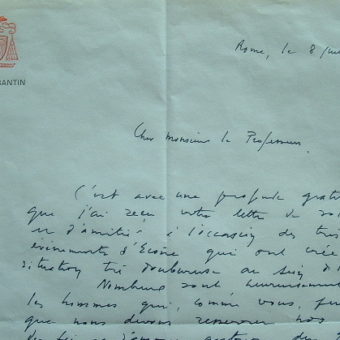 RANTIN
Rome, le 8 jui
Cher Monsieur le Professeur
C'est avec une profonde grati
que j'ai reçu votre lettre de sol
et d'amitié à l'occasion des tris
événements d'Ecône qui ont créé
situation très douloureuse au sein d
Nombreux sont heureusement
les hommes qui, comme vous,
que nous devons resserrer nos